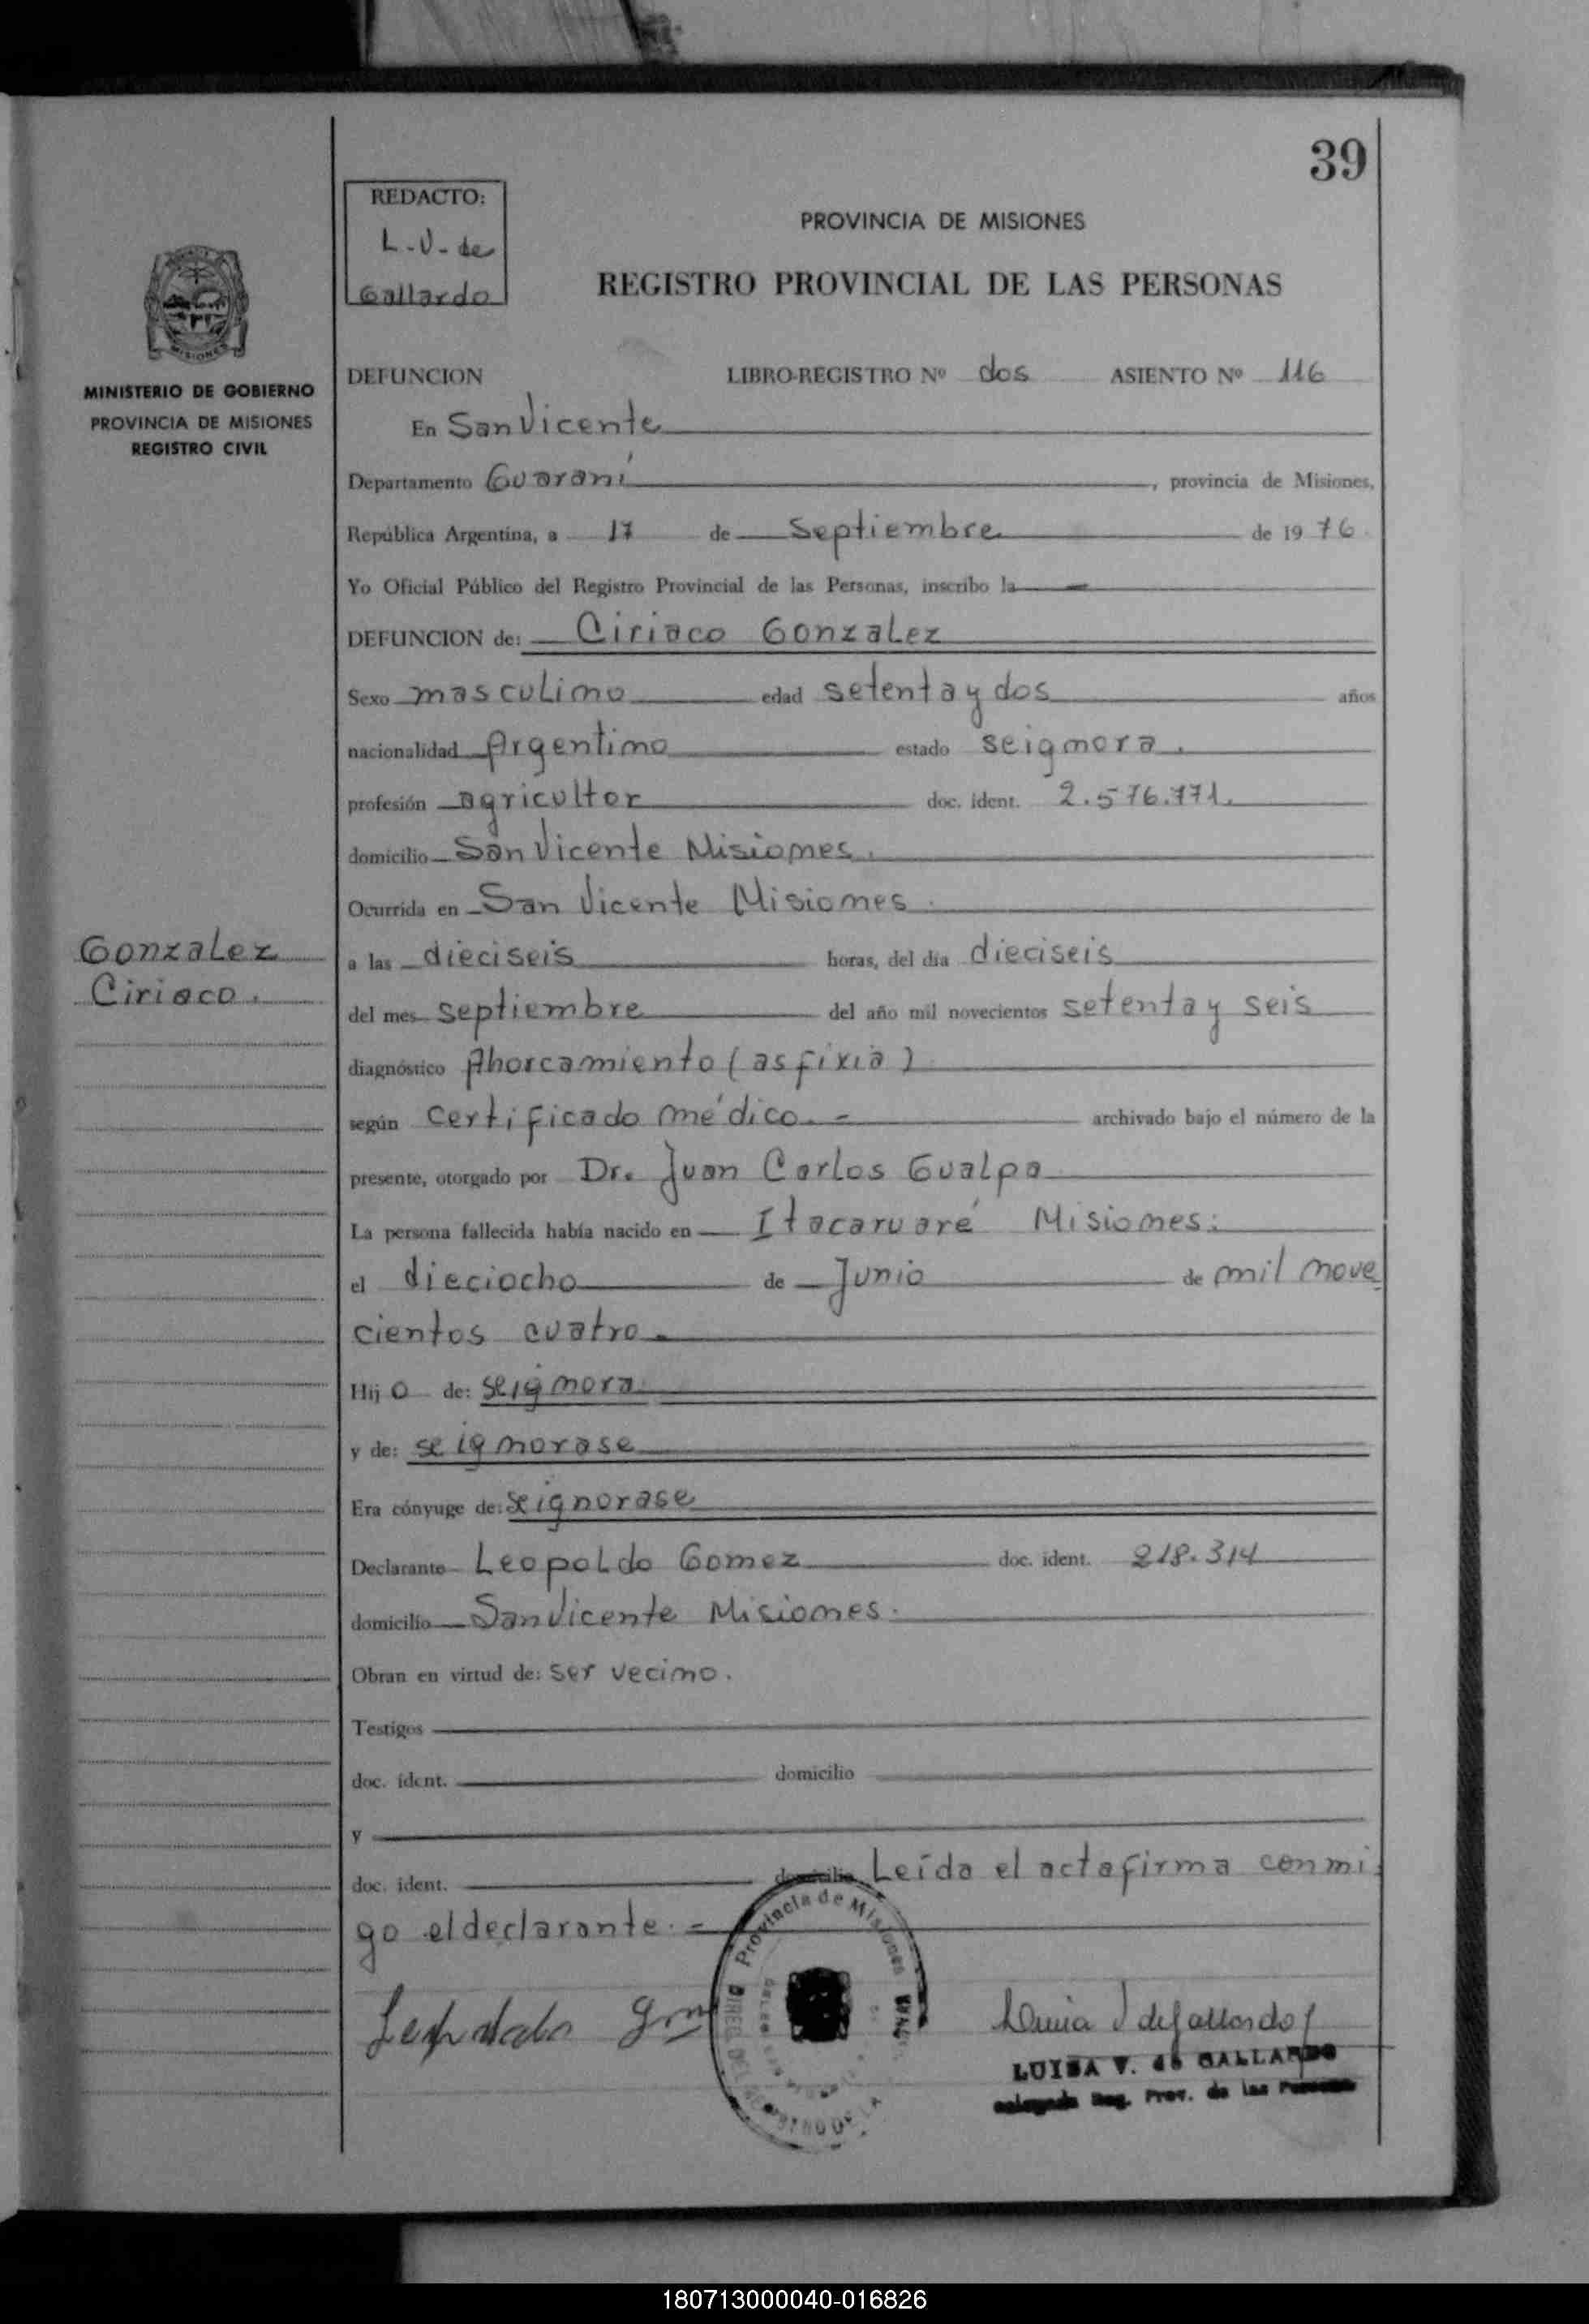 39
REDACTO:
L-V-de
Gallardo
PROVINCIA DE MISIONES
REGISTRO PROVINCIAL DE LAS PERSONAS
MISIONES
MINISTERIO DE GOBIERNO
PROVINCIA DE MISIONES
REGISTRO CIVIL
DEFUNCION LIBRO-REGISTRO Nº dos ASIENTO Nº 116
En San Vicente
Departamento Guaraní, provincia de Misiones,
República Argentina, a 17 de Septiembre de 1976
Yo Oficial Público del Registro Provincial de las Personas, inscribo la
DEFUNCION de: Ciriaco Gonzalez
Sexo masculino edad setenta y dos años
nacionalidad Argentino estado seignora.
profesión agricultor doc. ident. 2.576.771.
domicilio San Vicente Misiones.
Ocurrida en San Vicente Misiones.
Gonzalez
Ciriaco.
a las dieciseis horas, del día dieciseis
del mes septiembre del año mil novecientos setenta y seis
diagnóstico Ahorcamiento (asfixia)
según certificado médico.- archivado bajo el número de la
presente, otorgado por Dr. Juan Carlos Gualpa
La persona fallecida había nacido en Itacaruaré Misiones.
el dieciocho de Junio de mil nove
cientos cuatro.
Hijo de: seignora
y de: seignorase
Era cónyuge de: seignorase
Declarante Leopoldo Gomez doc. ident. 218.314
domicilio San Vicente Misiones.
Obran en virtud de: ser vecino.
Testigos
doc. ident. domicilio
y
doc. ident. domicilio Leída el acta firma conmi
go el declarante.-
Provincia de Misiones
LUISA V. de GALLARDO
Reg. Prov. de las Personas
180713000040-016826